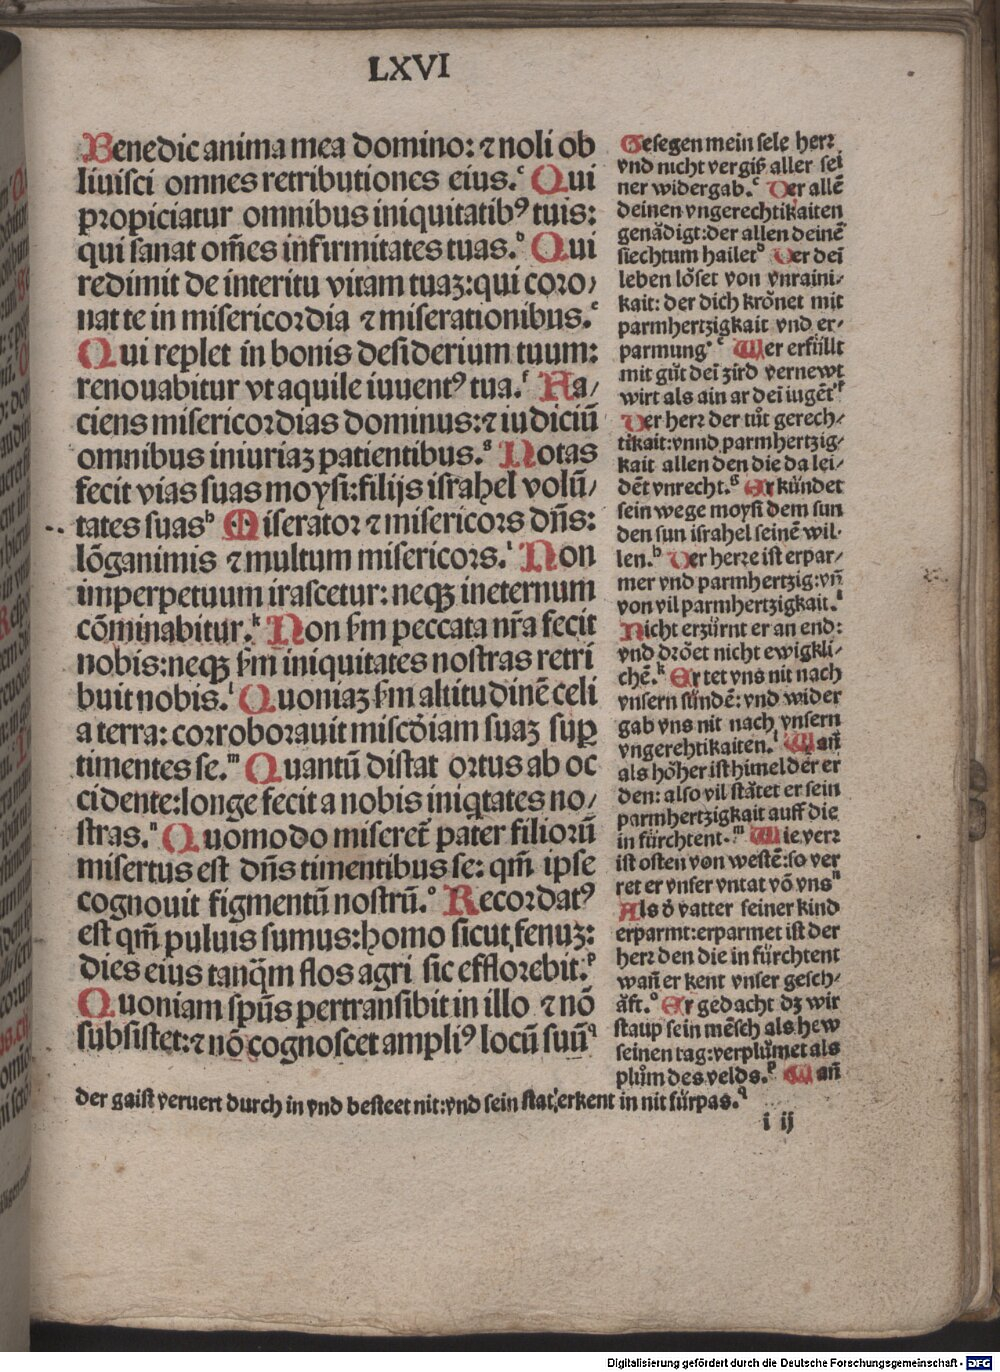 LXVI
Benedic anima mea domino: ⁊ noli ob
liuisci omnes retributiones eius.ᶜ Qui
propiciatur omnibus iniquitatibꝰ tuis:
qui sanat om̃es infirmitates tuas.ᵈ Qui
redimit de interitu vitam tuaꝫ: qui coro/
nat te in misericordia ⁊ miserationibus.ᵉ
Qui replet in bonis desiderium tuum:
renouabitur vt aquile iuuentꝰ tua.ᶠ Fa/
ciens misericordias dominus: ⁊ iudiciū
omnibus iniuriaꝫ patientibus.ᵍ Notas
fecit vias suas moysi: filijs israhel volū/
tates suasʰ Miserator ⁊ misericors dñs:
lōganimis ⁊ multum misericors.ⁱ Non
imperpetuum irascetur: neqꝫ ineternum
cōminabitur.ᵏ Non ẜm peccata nr̃a fecit
nobis: neqꝫ ẜm iniquitates nostras retri
buit nobis.ˡ Quoniaꝫ ẜm altitudinē celi
a terra: corroborauit miscd̕iam suaꝫ suꝑ
timentes se.ᵐ Quantū distat ortus ab oc
cidente: longe fecit a nobis iniq̇tates no/
stras.ⁿ Quomodo miseret̃ pater filiorū
misertus est dñs timentibus se: qm̃ ipse
cognouit figmentū nostrū.ᵒ Recordatꝰ
est qm̃ puluis sumus: homo sicut fenuꝫ:
dies eius tanq̃m flos agri sic efflorebit.ᵖ
Quoniam sp̃us pertransibit in illo ⁊ nō
subsistet: ⁊ nō cognoscet ampliꝰ locū suū
Gesegen mein sele herr
vnd nicht vergiß aller sei
ner widergab.ᶜ Der allē
deinen vngerechtikaiten
genädigt: der allen deinē
siechtum hailetᵈ Der deī
leben löset von vnraini⸗
kait: der dich krönet mit
parmhertzigkait vnd er⸗
parmungᵉ Wer erfüllt
mit güt deī zird vernewt
wirt als ain ar deī iugētᶠ
Der herr der tůt gerech⸗
tikait: vnnd parmhertzig⸗
kait allen den die da lei⸗
dēt vnrecht.ᵍ Er kündet
sein wege moysi dem sun
den sun israhel seinē wil⸗
len.ʰ Der herre ist erpar⸗
mer vnd parmhertzig: vñ
von vil parmhertzigkait.ⁱ
Nicht erzürnt er an end:
vnd dröet nicht ewigkli⸗
chē.ᵏ Er tet vns nit nach
vnsern sündē: vnd wider
gab vns nit nach vnsern
vngerehtikaiten.ˡ Wañ
als höher ist himel der er
den: also vil stätet er sein
parmhertzigkait auff die
in fürchtent.ᵐ Wie verr
ist osten von westē: so ver
ret er vnser vntat vō vnsⁿ
Als d̕ vatter seiner kind
erparmt: erparmet ist der
herr den die in fürchtent
wañ er kent vnser gesch⸗
äft.ᵒ Er gedacht dꝫ wir
staup sein mēsch als hew
seinen tag: verplůmet als
plům des velds.ᵖ Wañ
der gaist veruert durch in vnd besteet nit: vnd sein stat erkent in nit fürpas.
i ij
Digitalisierung gefördert durch die Deutsche Forschungsgemeinschaft - DFG